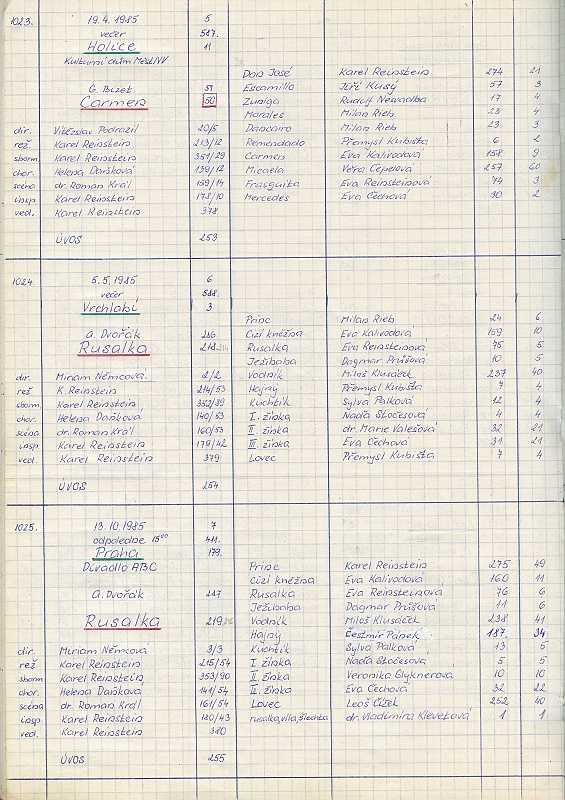 1023. 19. 4. 1985 5
večer 587.
Holice 11
Kulturní dům MěstNV
Don José Karel Reinstein 274 21
G. Bizet 51 Escamillo Jiří Kusý 57 3
Carmen 50 Zuniga Rudolf Nesvadba 17 4
Morales Milan Rieb 23 4
dir. Vítězslav Podrazil 20/5 Dancairo Milan Rieb 23 3
rež. Karel Reinstein 213/12 Remendado Přemysl Kubišta 6 2
sborm. Karel Reinstein 351/29 Carmen Eva Kalivodová 158 9
chor. Helena Daňková 139/12 Micaela Věra Čepelová 257 60
scéna dr. Roman Král 159/14 Frasquita Eva Reinsteinová 74 3
insp. Karel Reinstein 178/10 Mercedes Eva Čechová 30 2
ved. Karel Reinstein 378
ÚVOS 253
1024. 5. 5. 1985 6
večer 588.
Vrchlabí 3
Princ Milan Rieb 24 6
A. Dvořák 216 Cizí kněžna Eva Kalivodová 159 10
Rusalka 218 Rusalka Eva Reinsteinová 75 5
Ježibaba Dagmar Průšová 10 5
dir. Miriam Němcová. 2/2 Vodník Miloš Klusáček 237 40
rež K. Reinstein 214/53 Hajný Přemysl Kubišta 7 4
sborm. Karel Reinstein 352/89 Kuchtík Sylva Palková 12 4
chor. Helena Daňková 140/53 I. žínka Naďa Stočesová 4 4
scéna dr. Roman Král 160/53 II. žínka dr. Marie Valešová 32 21
insp. Karel Reinstein 179/42 III. žínka Eva Čechová 31 21
ved. Karel Reinstein 379 Lovec Přemysl Kubišta 7 4
ÚVOS 254
1025. 13. 10. 1985 7
odpoledne 15⁰⁰ 411.
Praha 179.
Divadlo ABC Princ Karel Reinstein 275 49
Cizí kněžna Eva Kalivodová 160 11
A. Dvořák 217 Rusalka Eva Reinsteinová 76 6
Ježibaba Dagmar Průšová 11 6
Rusalka 219 Vodník Miloš Klusáček 238 41
Hajný Čestmír Pánek 187 34
dir. Miriam Němcová 3/3 Kuchtík Sylva Palková 13 5
rež Karel Reinstein 215/54 I žínka Naďa Stočesová 5 5
sborm. Karel Reinstein 353/90 II. žínka Veronika Glyknerová 10 10
chor. Helena Daňková 141/54 III. žínka Eva Čechová 32 22
scéna dr. Roman Král 161/54 Lovec Leoš Čížek 252 40
insp. Karel Reinstein 180/43 rusalka, víla, šlechta dr. Vladimíra Klevetová 1 1
ved. Karel Reinstein 380
ÚVOS 255